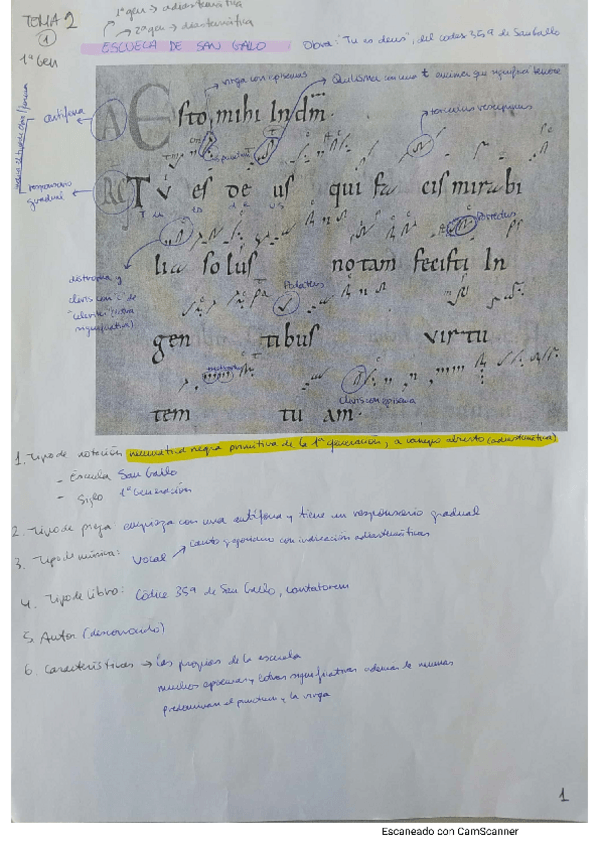 TOMA 2
1ª gen → adiastemática
2ª gen → diastemática
①
ESCUELA DE SAN GALO
Obra: "Tu es deus", del codex 359 de San Gallo
1ª Gen
virga con episema
Quilisma con una t encima que significa tenere
antífona
A
Esto mihi In dm̄
torculus resupinus
responsorio gradual
RG
Tu es de us qui fa cis mirabi
Tu es de us
Porrectus
distropha y
clivis con "c" de
"celeriter" (letra
significativa)
lia solus notam fecisti In
gen tibus virtu
clivis con episema
tem tu am.
1. Tipo de notación neumática negra primitiva de la 1ª generación, a campo abierto (adiastemática)
- Escuela San Gallo
- Siglo 1ª Generación
2. Tipo de pieza empieza con una antífona y tiene un responsorio gradual
3. Tipo de música: vocal → canto gregoriano con indicación adiastemáticas
4. Tipo de libro: Códice 359 de San Gallo, cantatorium
5. Autor (desconocido)
6. Características → las propias de la escuela
muchos episemas y letras significativas además de neumas
predominan el punctum y la virga
1
Escaneado con CamScanner